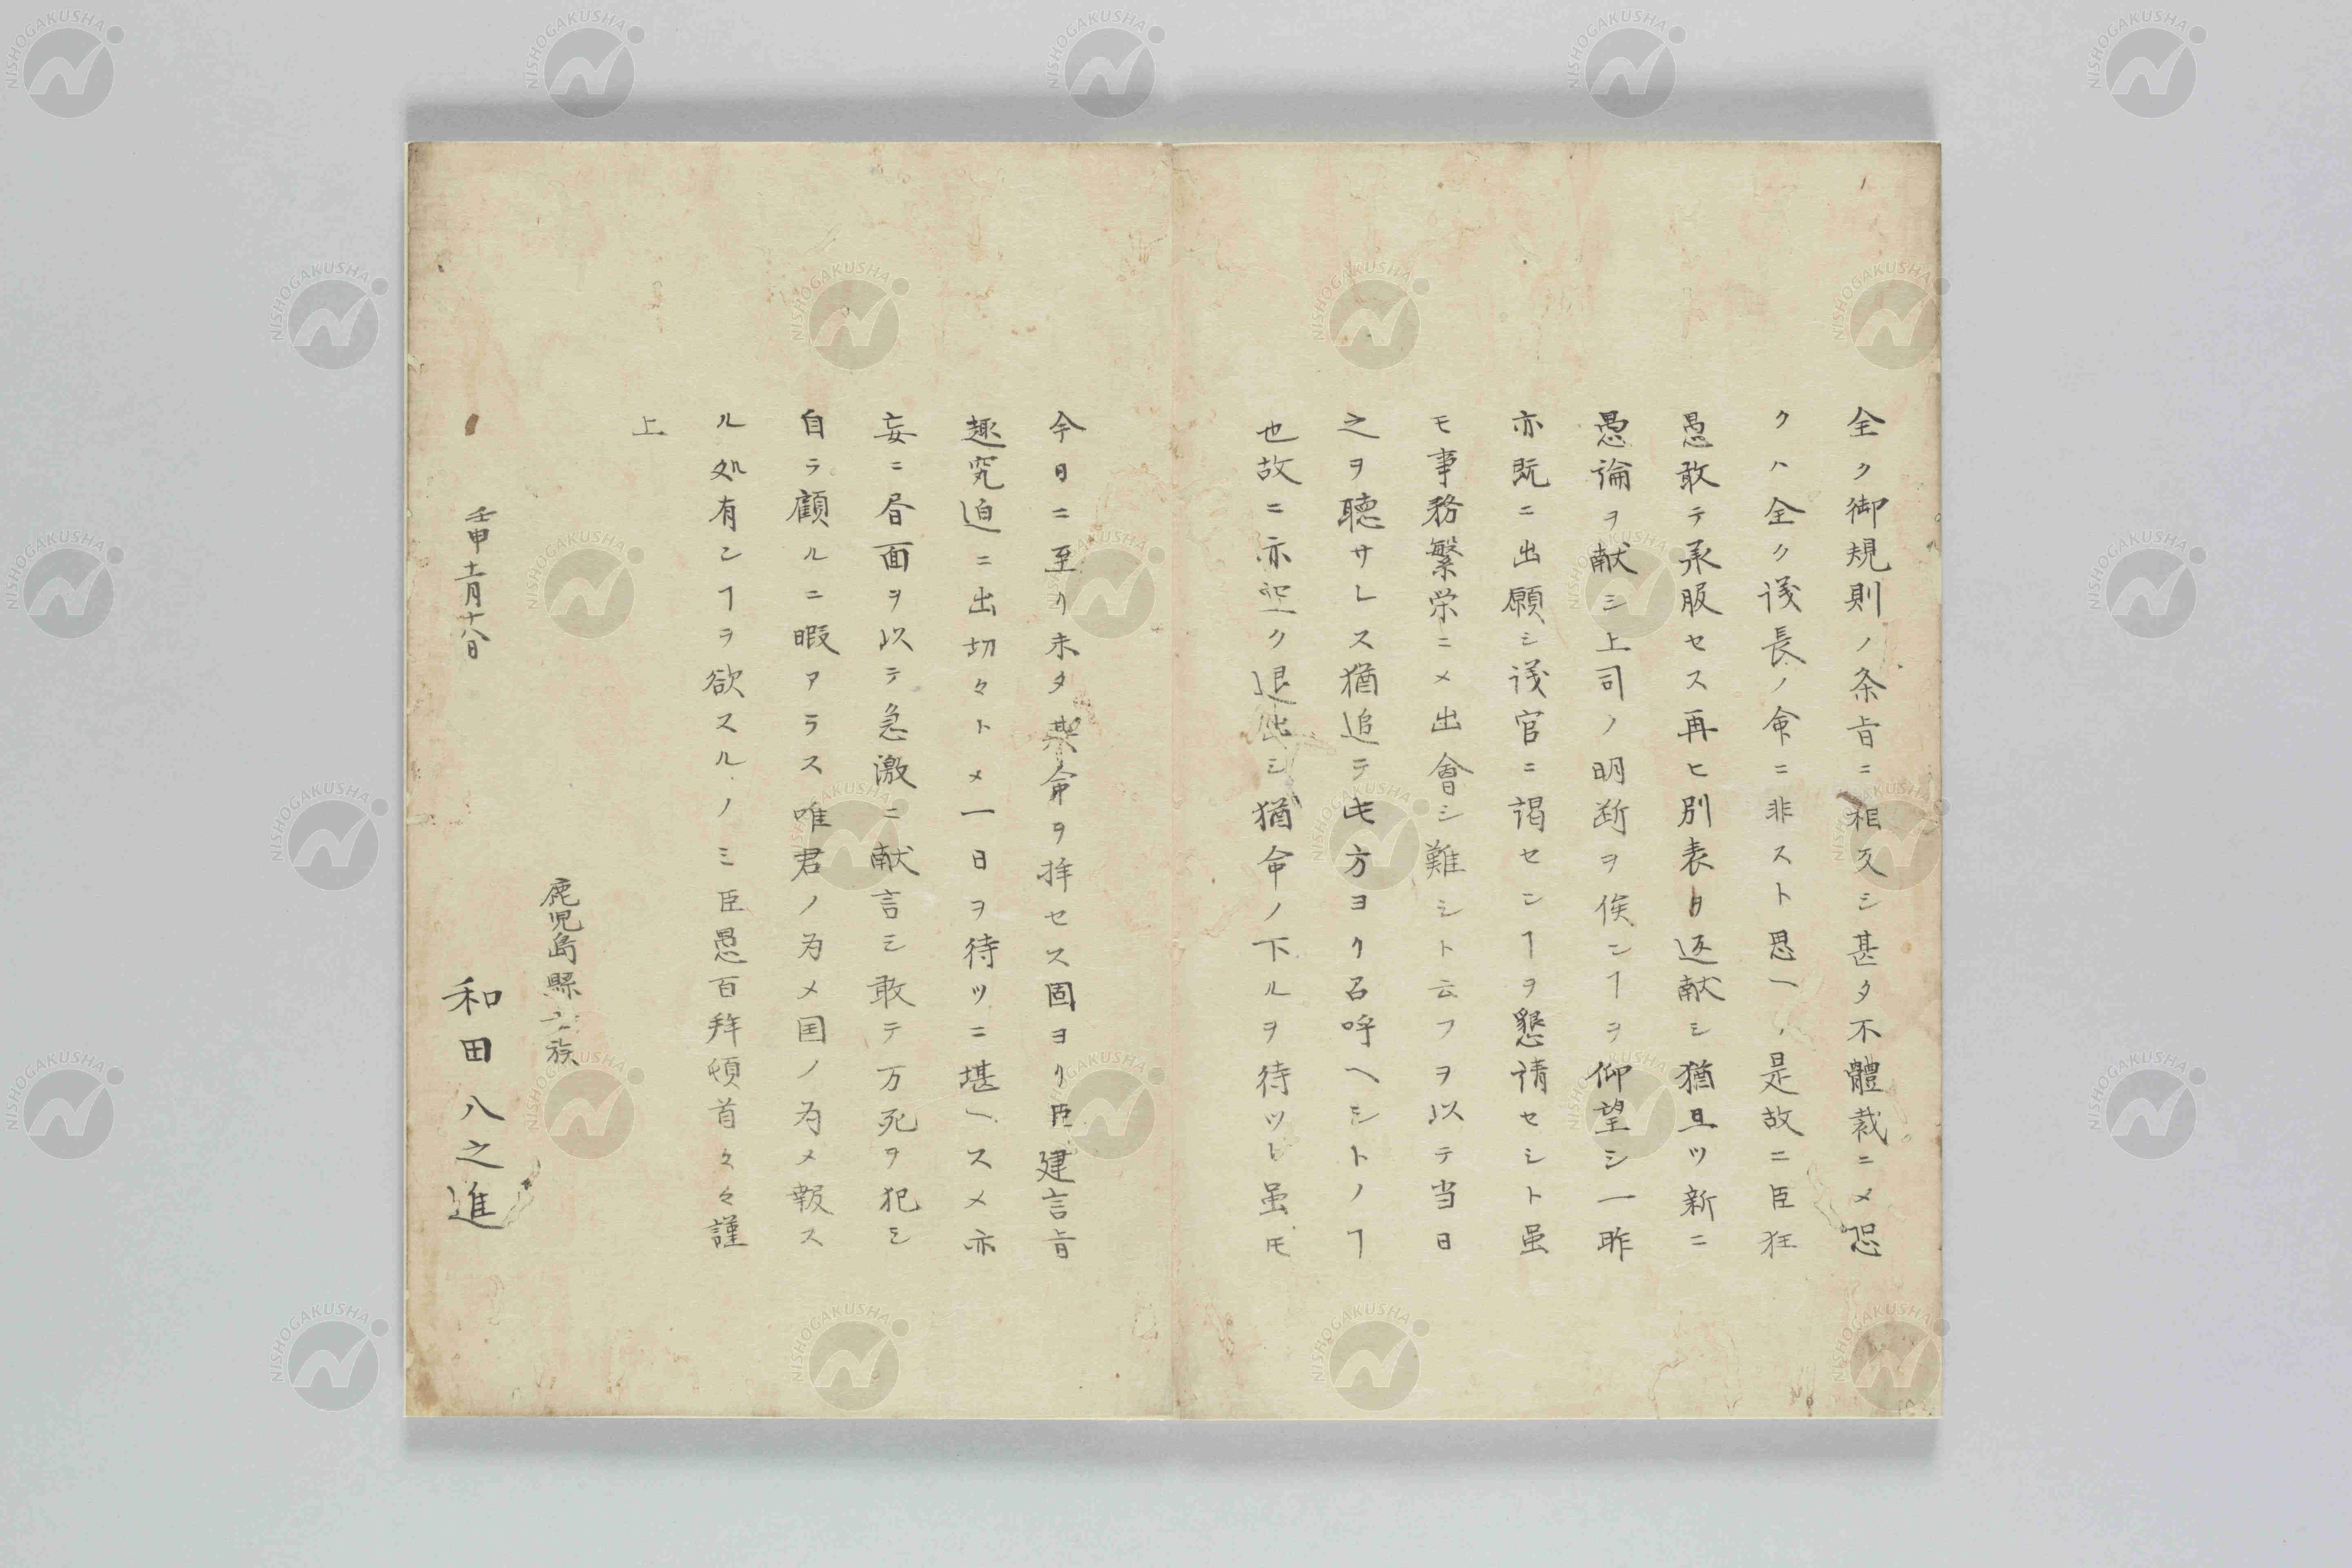 全ク御規則ノ条旨ニ相反シ甚タ不體裁ニメ恐
クハ全ク議長ノ命ニ非スト思ヘリ是故ニ臣狂
愚敢テ承服セス再ヒ別表夕返献シ猶且ツ新ニ
愚論ヲ献シ上司ノ明断ヲ俟ンヿヲ仰望シ一昨
亦既ニ出願シ議官ニ謁センヿヲ懇請セシト虽
モ事務繁栄ニメ出會シ難シト云フヲ以テ当日
之ヲ聴サレス猶追テ此方ヨリ召呼ヘシトノヿ
也故ニ亦空ク退出シ猶命ノ下ルヲ待ツト虽𪜈
今日ニ至リ未タ命ヲ拝セス固ヨリ臣建言旨
趣究迫ニ出切々トメ一日ヲ待ツニ堪ヘスメ亦
妄ニ昏面ヲ以テ急激ニ献言シ敢テ万死ヲ犯シ
自ラ顧ルニ暇アラス唯君ノ為メ国ノ為メ報ス
ル処有ンヿヲ欲スルノミ臣愚百拜頓首々々謹
上
鹿児島縣士族
壬申十一月十八日
和田八之進
NISHOGAKUSHA